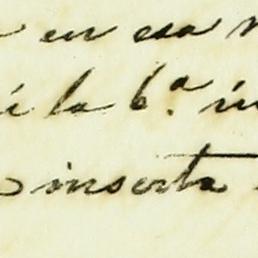 en esa
la 6.ª
inserta